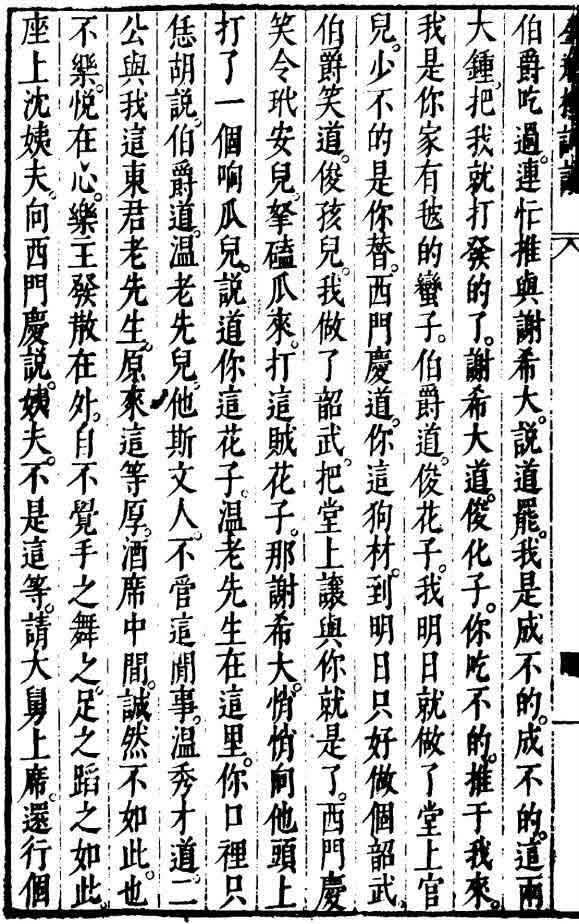 八
伯爵吃過。連忙推與謝希大。說道罷。我是成不的。成不的。這兩
大鍾。把我就打發的了。謝希大道。俊化子。你吃不的。推于我來。
我是你家有毬的蠻子。伯爵道。俊花子。我明日就做了堂上官
兒。少不的是你替。西門慶道。你這狗材。到明日只好做個韶武
伯爵笑道。俊孩兒。我做了韶武。把堂上讓與你就是了。西門慶
笑令玳安兒。拏磕瓜來。打這賊花子。那謝希大。悄悄向他頭上
打了一個响瓜兒。說道你這花子。溫老先生在這里。你口裡只
恁胡說。伯爵道。溫老先兒。他斯文人。不管這閒事。溫秀才道。二
公與我這東君老先生。原來這等厚。酒席中間。誠然不如此。也
不樂。悅在心。樂主發散在外。自不覺手之舞之。足之蹈之如此。
座上沈姨夫。向西門慶說。姨夫。不是這等。請大舅上席。還行個